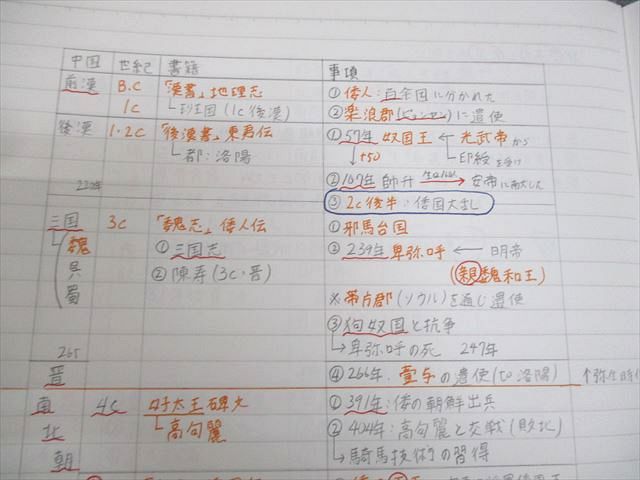 中国 世紀 書籍 事項
前漢 B.C 「漢書」地理志 ① 倭人：百余国に分かれた
1c 班固(1c後漢) ② 楽浪郡(ピョンヤン)に遣使
後漢 1・2c 「後漢書」東夷伝 ① 57年 奴国王 ← 光武帝から
都：洛陽 ↓+50 印綬を受け
② 107年 帥升 生口160人→ 安帝に献上した
220年 ③ 2c後半：倭国大乱
三国 3c 「魏志」倭人伝 ① 邪馬台国
魏 ① 三国志 ② 239年 卑弥呼 ← 明帝
呉 ② 陳寿(3c・晋) (親魏倭王)
蜀 ※帯方郡(ソウル)を通じ遣使
③ 狗奴国と抗争
265 →卑弥呼の死 247年
晋 ④ 266年 壹与の遣使(to 洛陽) ↑弥生時代
南 4c 好太王碑文 ① 391年：倭の朝鮮出兵
北 高句麗 ② 404年：高句麗と交戦(敗北)
朝 →騎馬技術の習得